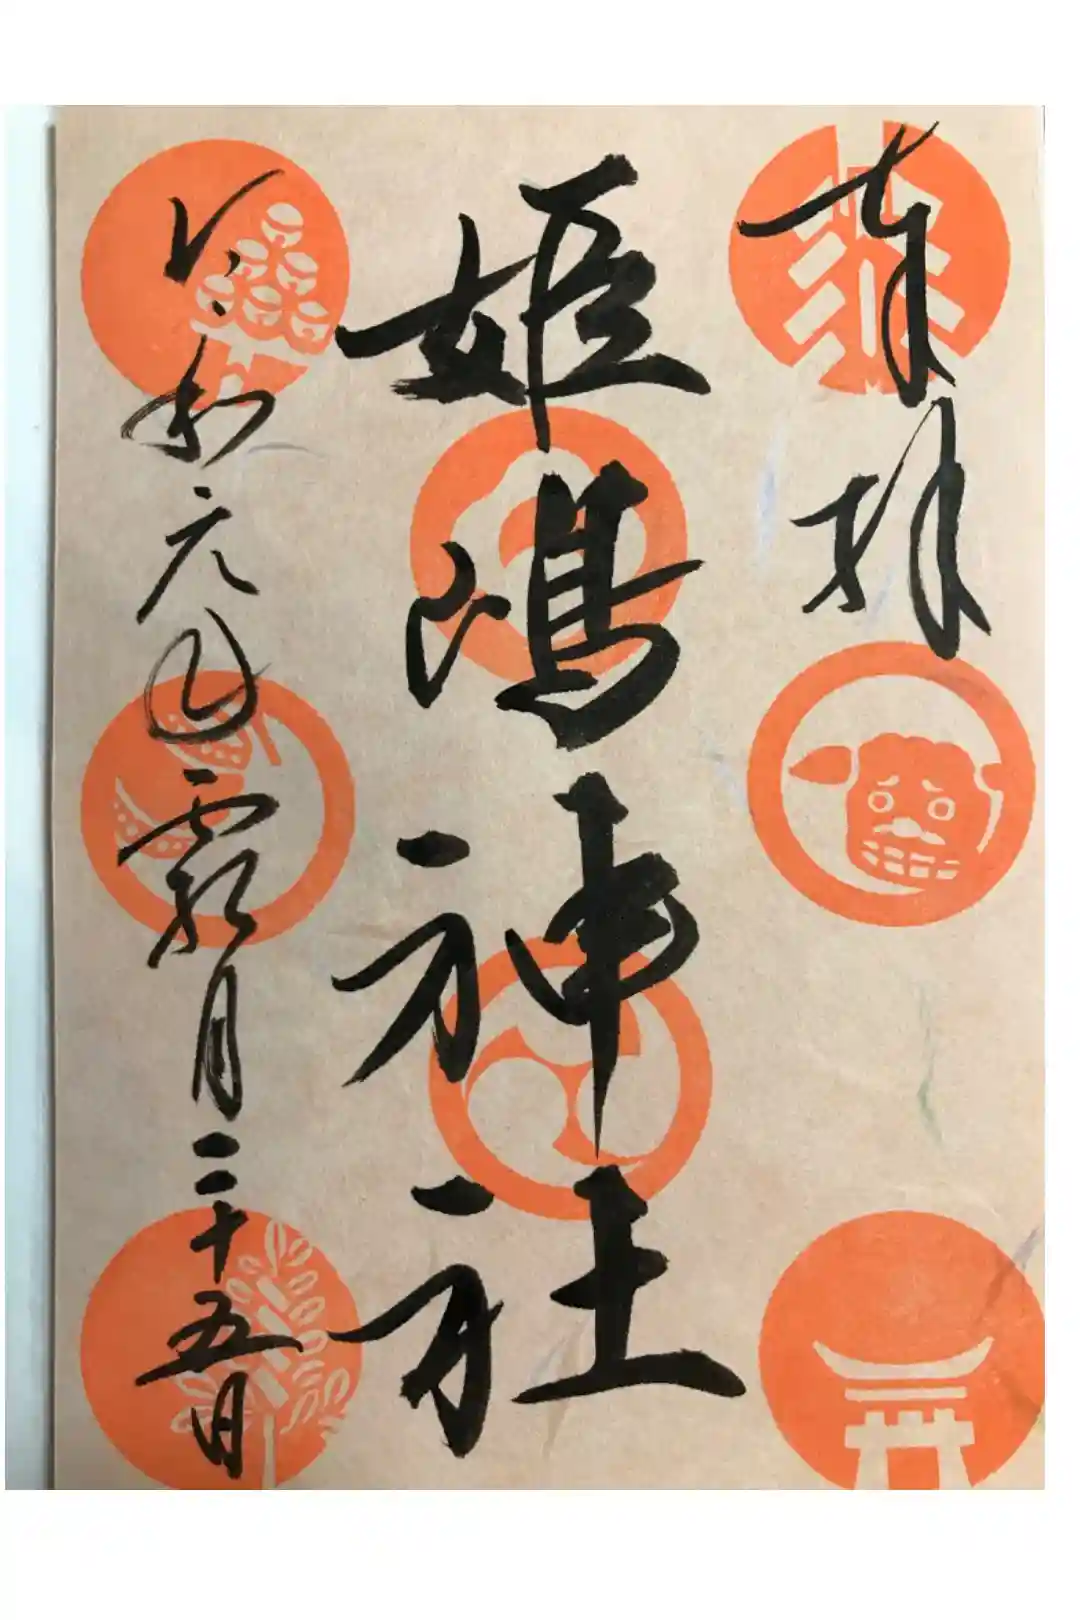 奉拝
姫嶋神社
令和元年霜月二十五日